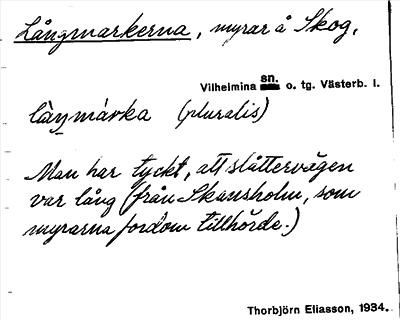 Långmarkerna, myrar å Skog,
Vilhelmina sn. o. tg. Västerb. l.
(pluralis)
Man har tyckt, att slåttervägen
var lång (från Skansholm, som
myrarna fordom tillhörde.)
Thorbjörn Eliasson, 1934.